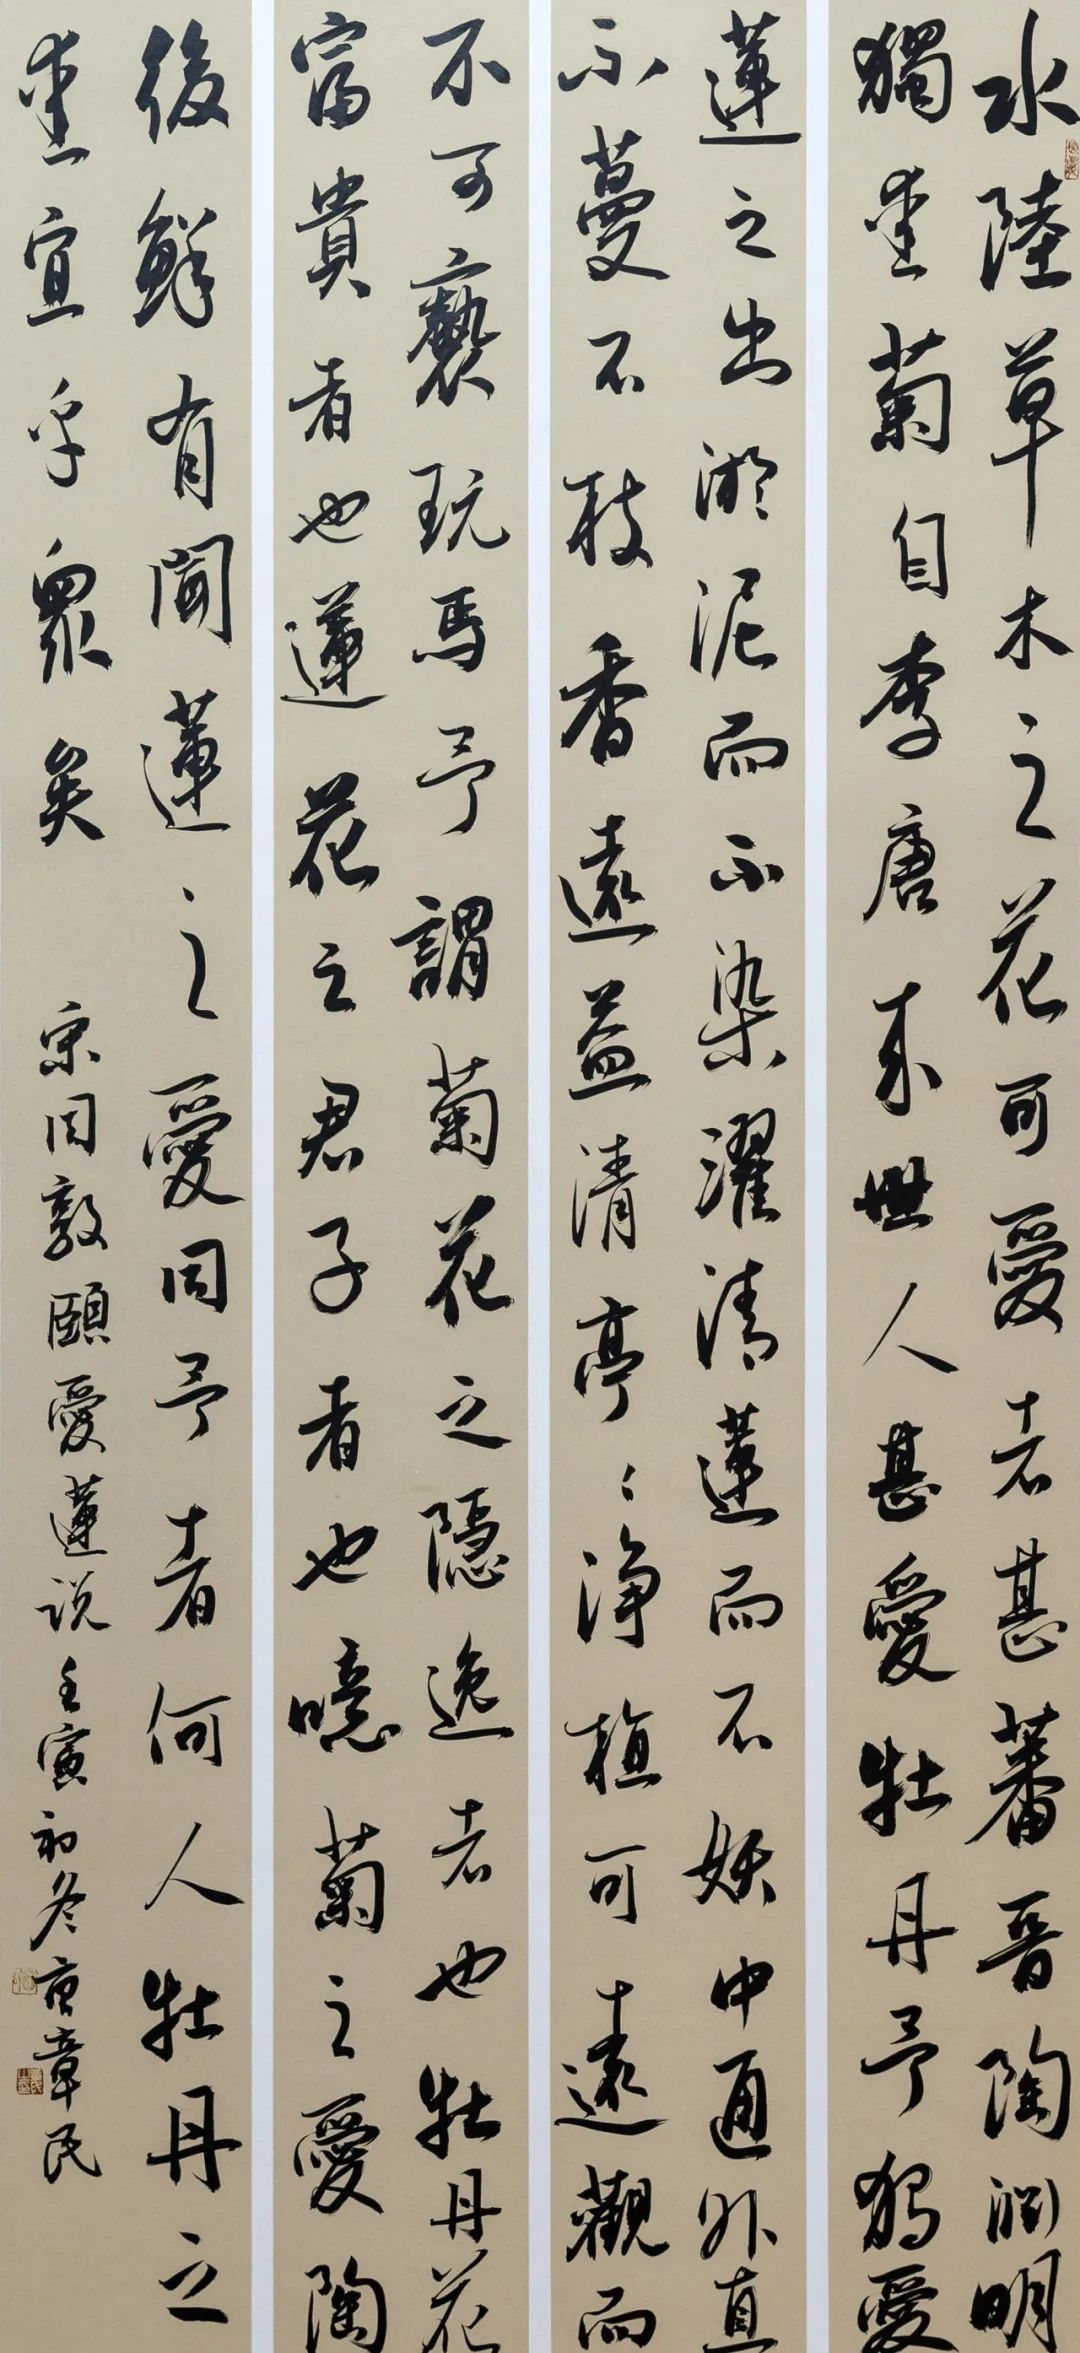 水陸草木之花可愛者甚蕃晋陶渊明
獨愛菊自李唐来世人甚愛牡丹予獨愛
蓮之出淤泥而不染濯清蓮而不妖中通外直
不蔓不枝香遠益清亭〻淨植可遠觀而
不可褻玩焉予謂菊花之隱逸者也牡丹花
富貴者也蓮花之君子者也噫菊之愛陶
後鮮有聞蓮之愛同予者何人牡丹之
愛宜乎衆矣 宋周敦頤愛蓮说 壬寅初冬章民